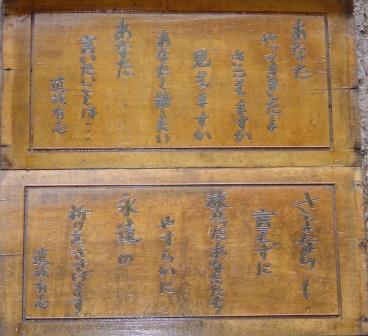 あなた
やってきましたよ
きこえますか
見えますか
あなたと話したい
あなた
言いたいことは…
遺族有志
さよならも
言わずに
旅立ったあなたたち
やすらかに
永遠の
祈りをささげます
遺族有志